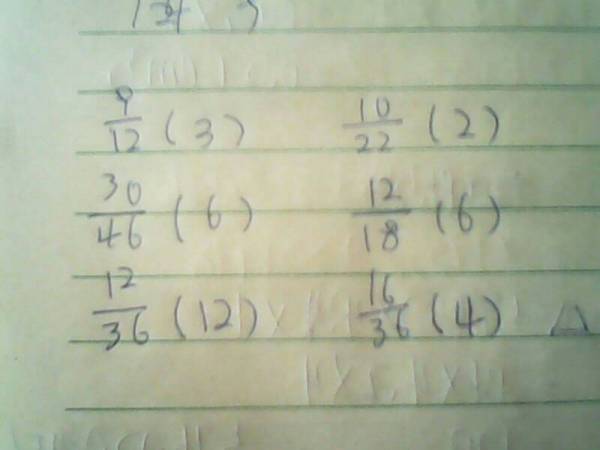 9/12 (3) 10/22 (2)
30/46 (6) 12/18 (6)
12/36 (12) 16/36 (4)